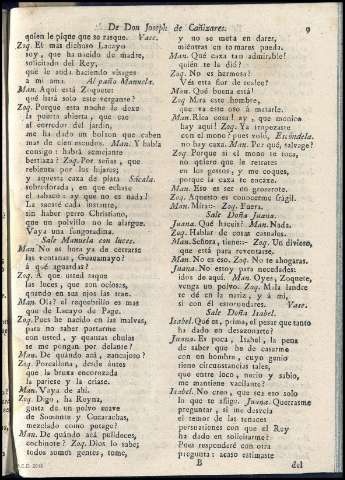 De Don Joseph de Cañizares. 9
quien le pique que so rasque. Vase.
Zaq. El más dichoso Lacayo
soy, que ha nacido de madre,
solicitado del Rey,
que le anda haciendo visages
a mi ama. Al paño Manuela.
Man. Aqui está Zoquete:
qué hará solo este vergante?
Zaq. Porque esta noche le dexe
la puerta abierta, que cae
al corredor del jardin,
me ha dado un bolson que caben
mas de cien escudos. Man. Y habla
consigo: habrá semejante
bestiaza? Zaq. Por señas, que
rebienta por los hijares;
y aquesta caxa de plata Sácala.
sobredorada, en que echase
el tabaco: ay que no es nada!
la sacaré cada instante,
sin haber perro Christiano,
que un polvillo no le alargue.
Vaya una fungoradina.
Sale Manuela con luces.
Man. No es hora ya de cerrarse
las ventanas, Guacamayo?
á qué aguardas?
Zaq. A que usted saque
las luces, que son ociosas,
quando en sus ojos las trae.
Man. Ola? el requebrillo es mas
que de Lacayo de Page.
Zaq. Pues he nacido en las malvas,
para no saber portarme
con usted, y quantas chulas
se me pongan por delante?
Man. De quándo acá, zancajoso?
Zaq. Porcallona, desde antes
que la bruxa encorozada
la pariese y la criase.
Man. Vaya de ahí.
Zaq. Digo, ha Reyna,
gusta de un polvo suave
de Somonte y Cucarachas,
mezclado como potage?
Man. De quándo acá pulideces,
cochinote? Zaq. Dios lo sabe;
todos somos gentes, tome,
y no se meta en dares,
mientras en tomares pueda.
Man. Qué caxa tan admirable!
quién te la dió?
Zaq. No es hermosa?
Vés esta flor de realce?
Man. Qué buena está!
Zaq. Mira este hombre,
que va este oso á matarle.
Man. Rica cosa! ay, que monica
hay aqui! Zaq. Ya tropezaste
con el mono? pues voló, Escóndela.
no hay caxa. Man. Por qué, salvage?
Zaq. Porque si el mono te toca,
no quiero que le retrates
en los gestos, y me coques,
porque la caxa te saque.
Man. Eso es ser un groserote.
Zaq. Aquesto es conocerme frágil.
Man. Mira:- Zaq. Fuera.
Sale Doña Juana.
Juana. Qué haceis? Man. Nada.
Zaq. Hablar de cosas casuales.
Man. Señora, tiene:- Zaq. Un divieso,
que está para reventarse.
Man. No es eso. Zaq. No te ahogaras.
Juana. No estoy para necedades:
idos de aqui. Man. Oyes, Zoquete,
venga un polvo. Zaq. Mala landre
te dé en la nariz, y á mí,
si con él estornudares. Vase.
Sale Doña Isabel.
Isabel. Qué es, prima, el pesar que tanto
ha dado en desazonarte?
Juana. Es poca, Isabel, la pena
de saber que he de casarme
con un hombre, cuyo genio
tiene circunstancias tales,
que entre loco, sabio, y simple,
me mantiene vacilante?
Isabel. No creo, que sea eso solo
lo que te aflige. Juana. Querrasme
preguntar, si me desvela
el temor de las tenaces
persuasiones con que el Rey
ha dado en solicitarme?
Pues responderé con otra
pregunta: acaso estimaste
B del
A.C.E. 2018